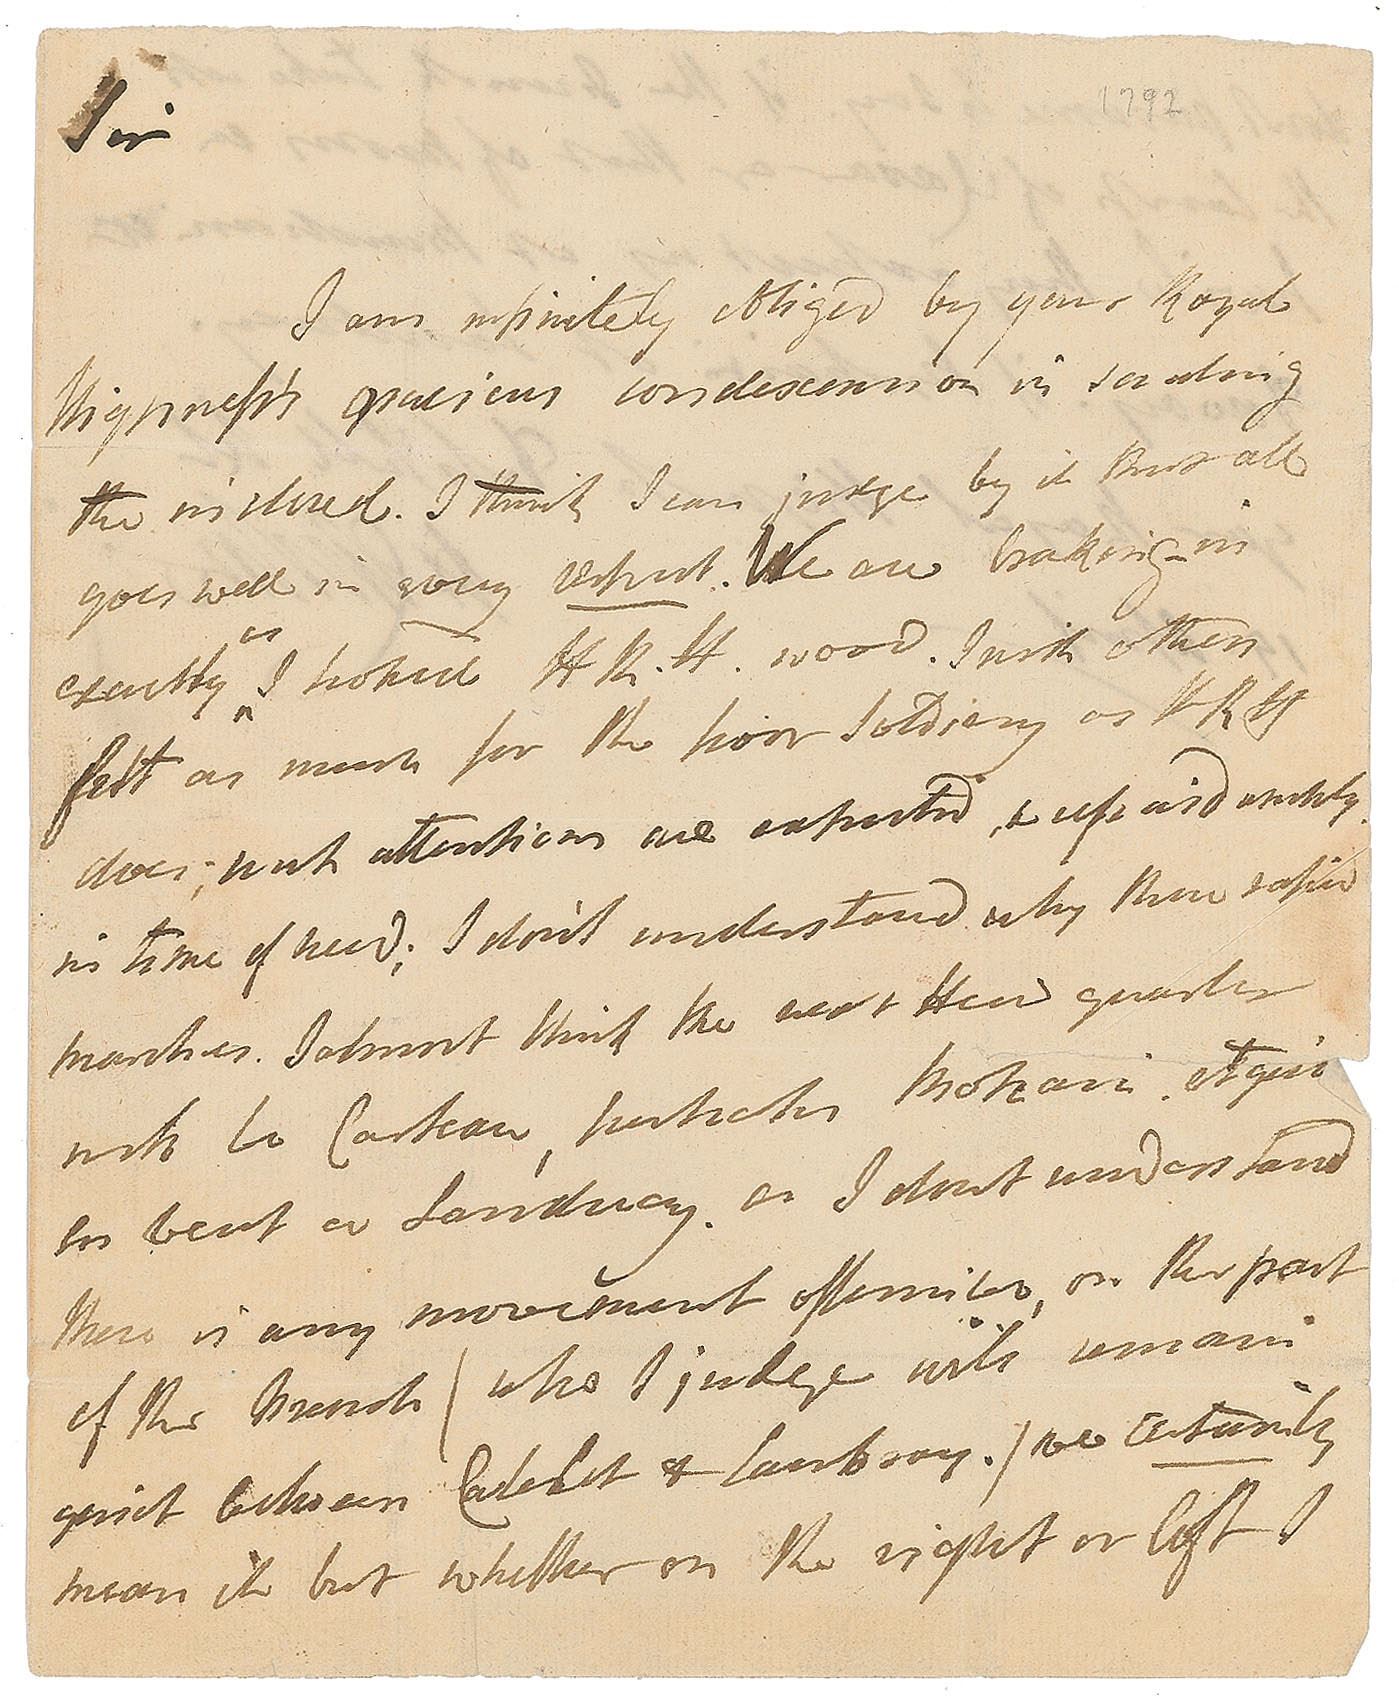 1792
Sir
I am infinitely obliged by your Royal
Highness's gracious condescension in sending
the inclosed. I think I can judge by it that all
goes well in every respect. We are braking-in
exactly as I hoped H R. H. wood. I wish others
felt as much for the poor Soldiery as H R H
does; such attentions are expected, & repaid amply
in time of need; I don't understand why these rapid
marches. I almost think the next Head quarters
will be Cateau, perhaps Bohain. et qui
en veut a Landrecy. as I dont understand
there is any movement offensive, on the part
of the French (who I judge will remain
quiet between Catelet & Cambray.) we certainly
mean it but whether on the right or left I